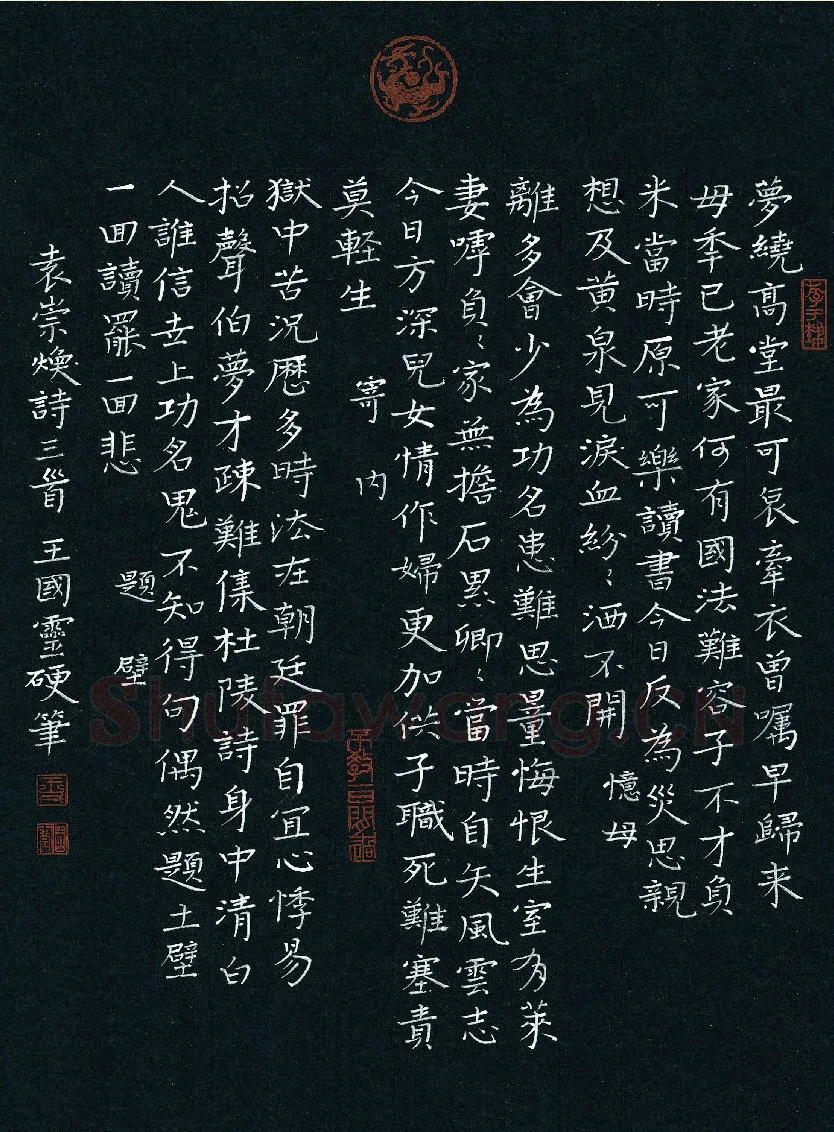 夢繞高堂最可哀牽衣曾囑早歸来
母秊已老家何有國法難容子不才負
米當時原可樂讀書今日反為災思親
想及黃泉見淚血紛〻洒不開
憶母
離多會少為功名患難思量悔恨生室有萊
妻嘑負〻家無擔石累卿〻當時自矢風雲志
今日方深兒女情作婦更加供子職死難塞責
莫軽生
寄內
獄中苦況歷多時法在朝廷罪自宜心悸易
招聲伯夢才疎難集杜陵詩身中清白
人誰信世上功名鬼不知得句偶然題土壁
一回讀罷一回悲
題壁
袁崇煥詩三首 王國靈硬筆
Shufawang.CN